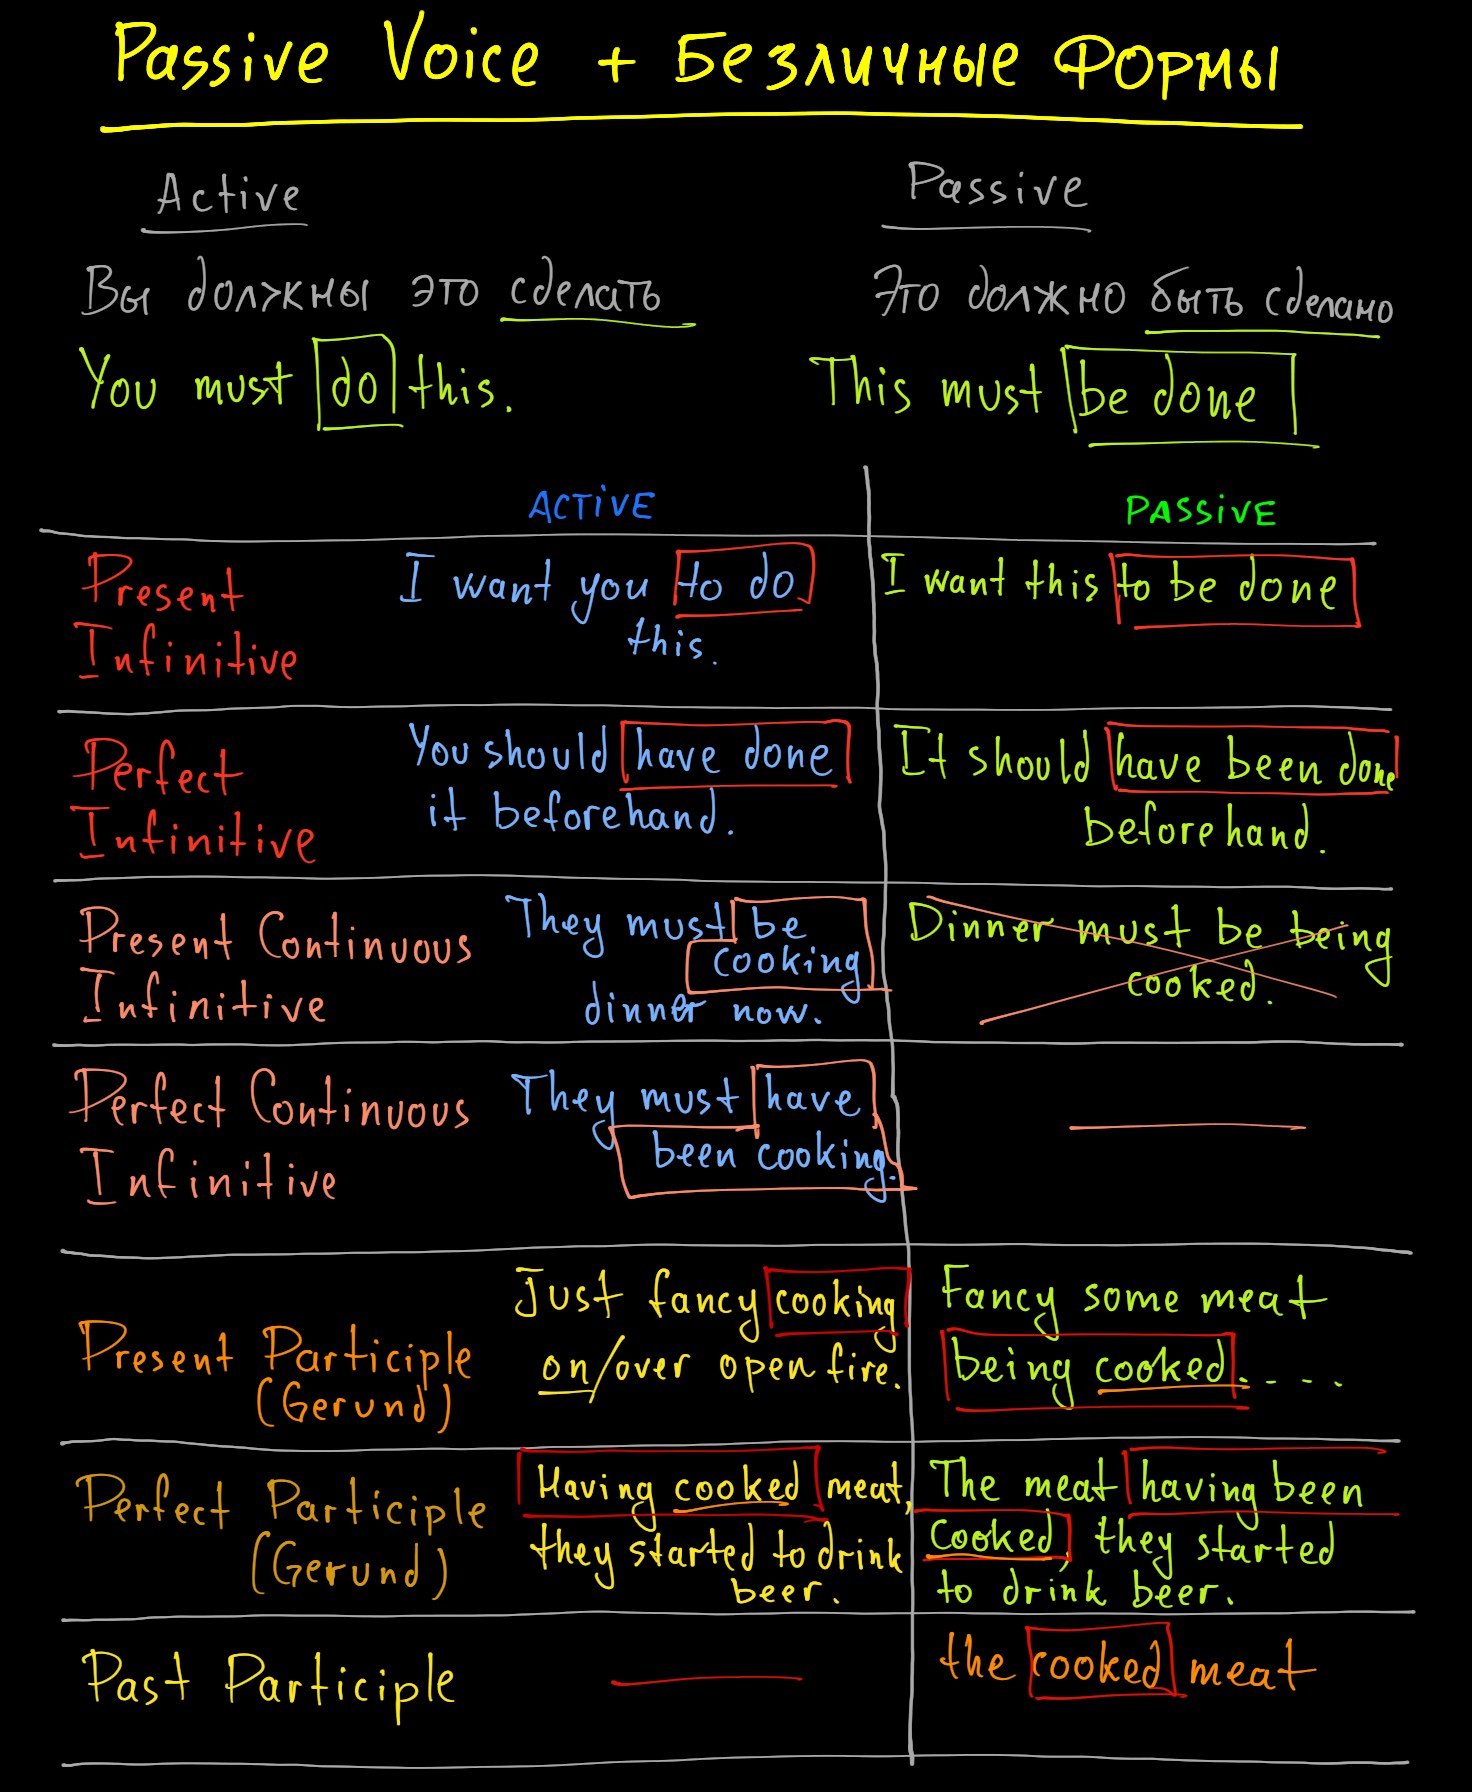 Passive Voice + Безличные Формы
Active
Passive
Вы должны это сделать
Это должно быть сделано
You must do this.
This must be done
ACTiVE
PASSiVE
Present
Infinitive
I want you to do
this.
I want this to be done
Perfect
Infinitive
You should have done
it beforehand.
It should have been done
beforehand.
Present Continuous
Infinitive
They must be
cooking
dinner now.
Dinner must be being
cooked.
Perfect Continuous
Infinitive
They must have
been cooking.
Present Participle
(Gerund)
Just fancy cooking
on/over open fire.
Fancy some meat
being cooked.....
Perfect Participle
(Gerund)
Having cooked meat,
they started to drink
beer.
The meat having been
cooked, they started
to drink beer.
Past Participle
the cooked meat